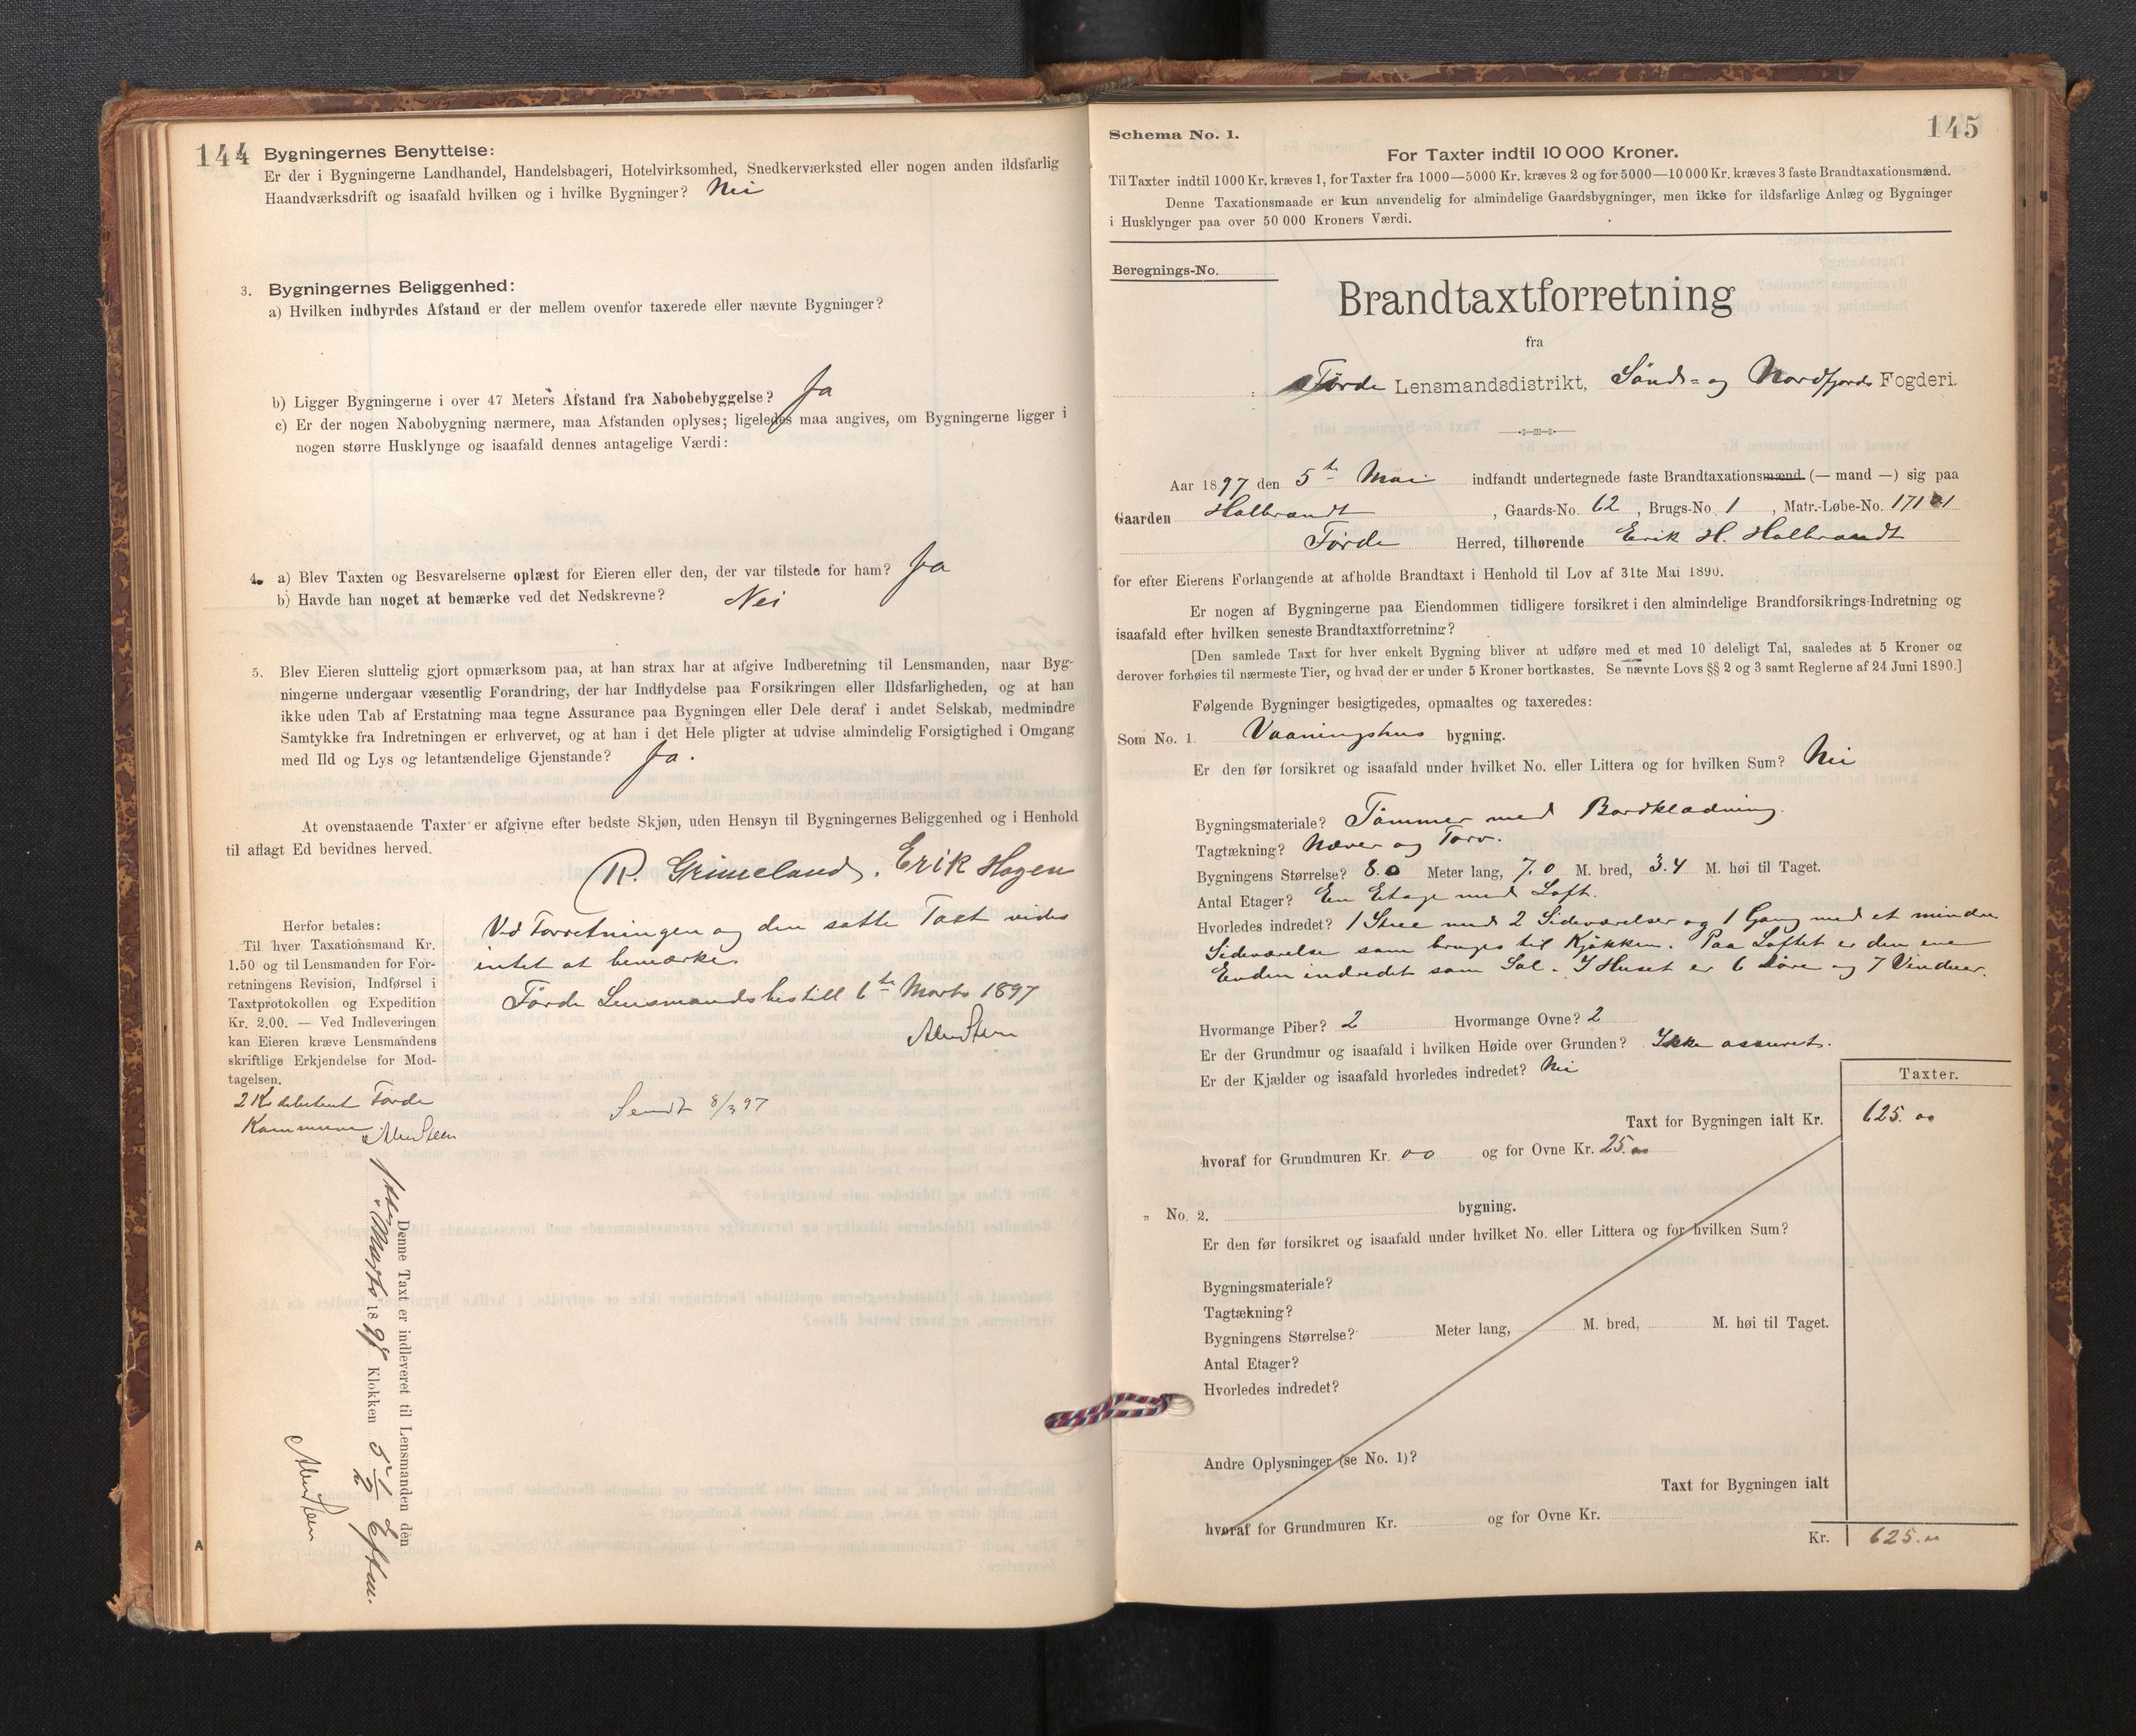 144
Bygningernes Benyttelse:
Er der i Bygningerne Landhandel, Handelsbageri, Hotelvirksomhed, Snedkerværksted eller nogen anden ildsfarlig
Haandværksdrift og isaafald hvilken og i hvilke Bygninger? Nei
3. Bygningernes Beliggenhed:
a) Hvilken indbyrdes Afstand er der mellem ovenfor taxerede eller nævnte Bygninger?
b) Ligger Bygningerne i over 47 Meters Afstand fra Nabobebyggelse? Ja
c) Er der nogen Nabobygning nærmere, maa Afstanden oplyses; ligeledes maa angives, om Bygningerne ligger i
nogen større Husklynge og isaafald dennes antagelige Værdi:
4. a) Blev Taxten og Besvarelserne oplæst for Eieren eller den, der var tilstede for ham? Ja
b) Havde han noget at bemærke ved det Nedskrevne? Nei
5. Blev Eieren sluttelig gjort opmærksom paa, at han strax har at afgive Indberetning til Lensmanden, naar Byg-
ningerne undergaar væsentlig Forandring, der har Indflydelse paa Forsikringen eller Ildsfarligheden, og at han
ikke uden Tab af Erstatning maa tegne Assurance paa Bygningen eller Dele deraf i andet Selskab, medmindre
Samtykke fra Indretningen er erhvervet, og at han i det Hele pligter at udvise almindelig Forsigtighed i Omgang
med Ild og Lys og letantændelige Gjenstande? Ja.
At ovenstaaende Taxter er afgivne efter bedste Skjøn, uden Hensyn til Bygningernes Beliggenhed og i Henhold
til aflagt Ed bevidnes herved.
R. Grimeland. Erik Hagen
Ved Forretningen og den satte Taxt vides
intet at bemærke.
Førde Lensmandsbestill 6te Marts 1897
Sendt 8/3 97
Herfor betales:
Til hver Taxationsmand Kr.
1.50 og til Lensmanden for For-
retningens Revision, Indførsel i
Taxtprotokollen og Expedition
Kr. 2.00. — Ved Indleveringen
kan Eieren kræve Lensmandens
skriftlige Erkjendelse for Mod-
tagelsen.
2 Kr debiteret Førde
Kommune.
Denne Taxt er indleveret til Lensmanden den
Marts 1897 Klokken 5 1/2 Eftm.
A
145
Schema No. 1.
For Taxter indtil 10 000 Kroner.
Til Taxter indtil 1000 Kr. kræves 1, for Taxter fra 1000—5000 Kr. kræves 2 og for 5000—10 000 Kr. kræves 3 faste Brandtaxationsmænd.
Denne Taxationsmaade er kun anvendelig for almindelige Gaardsbygninger, men ikke for ildsfarlige Anlæg og Bygninger
i Husklynger paa over 50 000 Kroners Værdi.
Beregnings-No.
Brandtaxtforretning
fra
Førde Lensmandsdistrikt, Sønd- og Nordfjords Fogderi.
Aar 1897 den 5te Mai indfandt undertegnede faste Brandtaxationsmænd (— mand —) sig paa
Gaarden Halbrandt, Gaards-No. 62, Brugs-No. 1, Matr.-Løbe-No. 171
Førde Herred, tilhørende Erik H. Halbrandt
for efter Eierens Forlangende at afholde Brandtaxt i Henhold til Lov af 31te Mai 1890.
Er nogen af Bygningerne paa Eiendommen tidligere forsikret i den almindelige Brandforsikrings-Indretning og
isaafald efter hvilken seneste Brandtaxtforretning?
[Den samlede Taxt for hver enkelt Bygning bliver at udføre med et med 10 deleligt Tal, saaledes at 5 Kroner og
derover forhøies til nærmeste Tier, og hvad der er under 5 Kroner bortkastes. Se nævnte Lovs §§ 2 og 3 samt Reglerne af 24 Juni 1890.]
Følgende Bygninger besigtigedes, opmaaltes og taxeredes:
Som No. 1. Vaaningshus bygning.
Er den før forsikret og isaafald under hvilket No. eller Littera og for hvilken Sum? Nei
Bygningsmateriale? Tømmer med Bordklædning.
Tagtækning? Næver og Torv.
Bygningens Størrelse? 8.0 Meter lang, 7.0 M. bred, 3.4 M. høi til Taget.
Antal Etager? En Etage med Loft.
Hvorledes indredet? 1 Stue med 2 Sideværelser og 1 Gang med et mindre
Sideværelse som bruges til Kjøkken. Paa Loftet er den ene
Enden indredet som Sal. I Huset er 6 Døre og 7 Vinduer.
Hvormange Piber? 2 Hvormange Ovne? 2
Er der Grundmur og isaafald i hvilken Høide over Grunden? Ikke assuret.
Er der Kjælder og isaafald hvorledes indredet? Nei
Taxter.
Taxt for Bygningen ialt Kr. 625.00
hvoraf for Grundmuren Kr. 00 og for Ovne Kr. 25.00
„ No. 2. bygning.
Er den før forsikret og isaafald under hvilket No. eller Littera og for hvilken Sum?
Bygningsmateriale?
Tagtækning?
Bygningens Størrelse? Meter lang, M. bred, M. høi til Taget.
Antal Etager?
Hvorledes indredet?
Andre Oplysninger (se No. 1)?
Taxt for Bygningen ialt
hvoraf for Grundmuren Kr. og for Ovne Kr.
Kr. 625.00